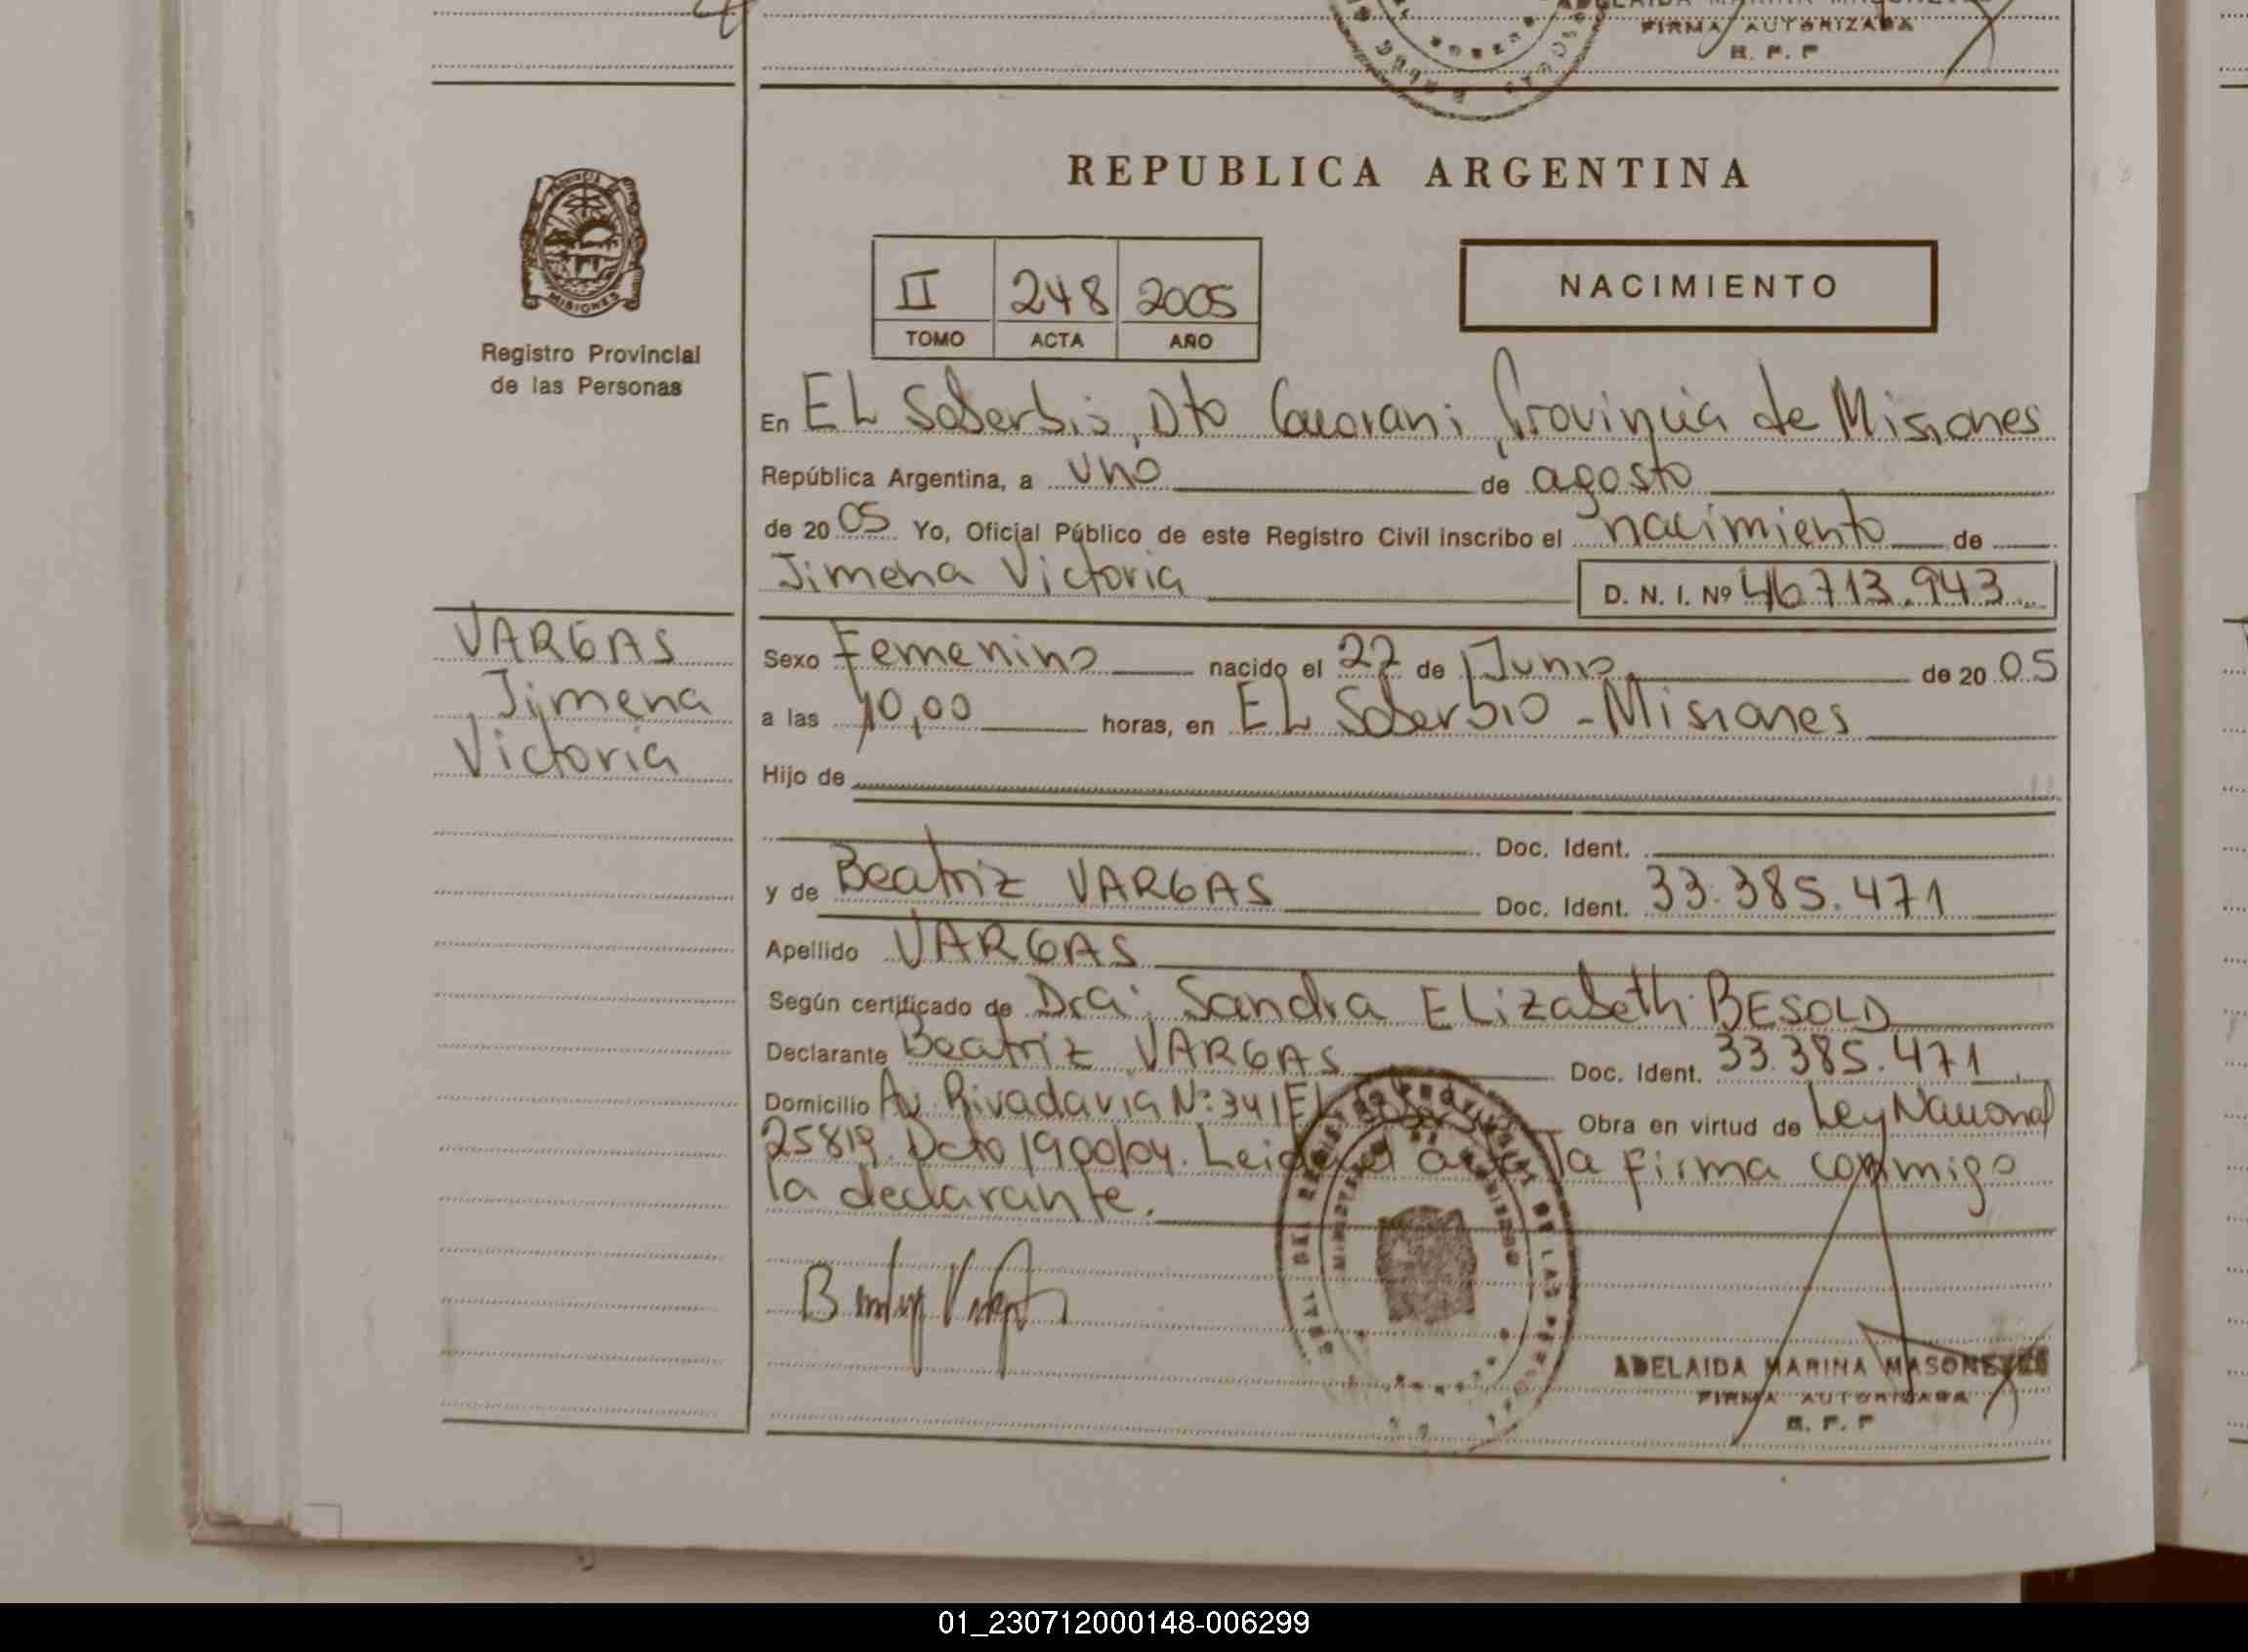 FIRMA AUTORIZADA
R. P. P
REPUBLICA ARGENTINA
PROVINCIA
MISIONES
Registro Provincial
de las Personas
II 248 2005
TOMO ACTA AÑO
NACIMIENTO
En EL Soberbio, Dto Guarani, Provincia de Misiones
República Argentina, a uno de agosto
de 2005 Yo, Oficial Público de este Registro Civil inscribo el nacimiento de
Jimena Victoria D. N. I. Nº 46713.943
VARGAS
Jimena
Victoria
Sexo Femenino nacido el 22 de Junio de 2005
a las 10,00 horas, en EL Soberbio - Misiones
Hijo de
Doc. Ident.
y de Beatriz VARGAS Doc. Ident. 33.385.471
Apellido VARGAS
Según certificado de Dra. Sandra ELizabeth BESOLD
Declarante Beatriz VARGAS Doc. Ident. 33.385.471
Domicilio Av. Rivadavia Nº 341 EL Obra en virtud de Ley Nacional
25819. Dcto 1900/04. Leida el acta la firma conmigo
la declarante.
ADELAIDA MARINA
FIRMA AUTORIZADA
R. P. P
01_230712000148-006299